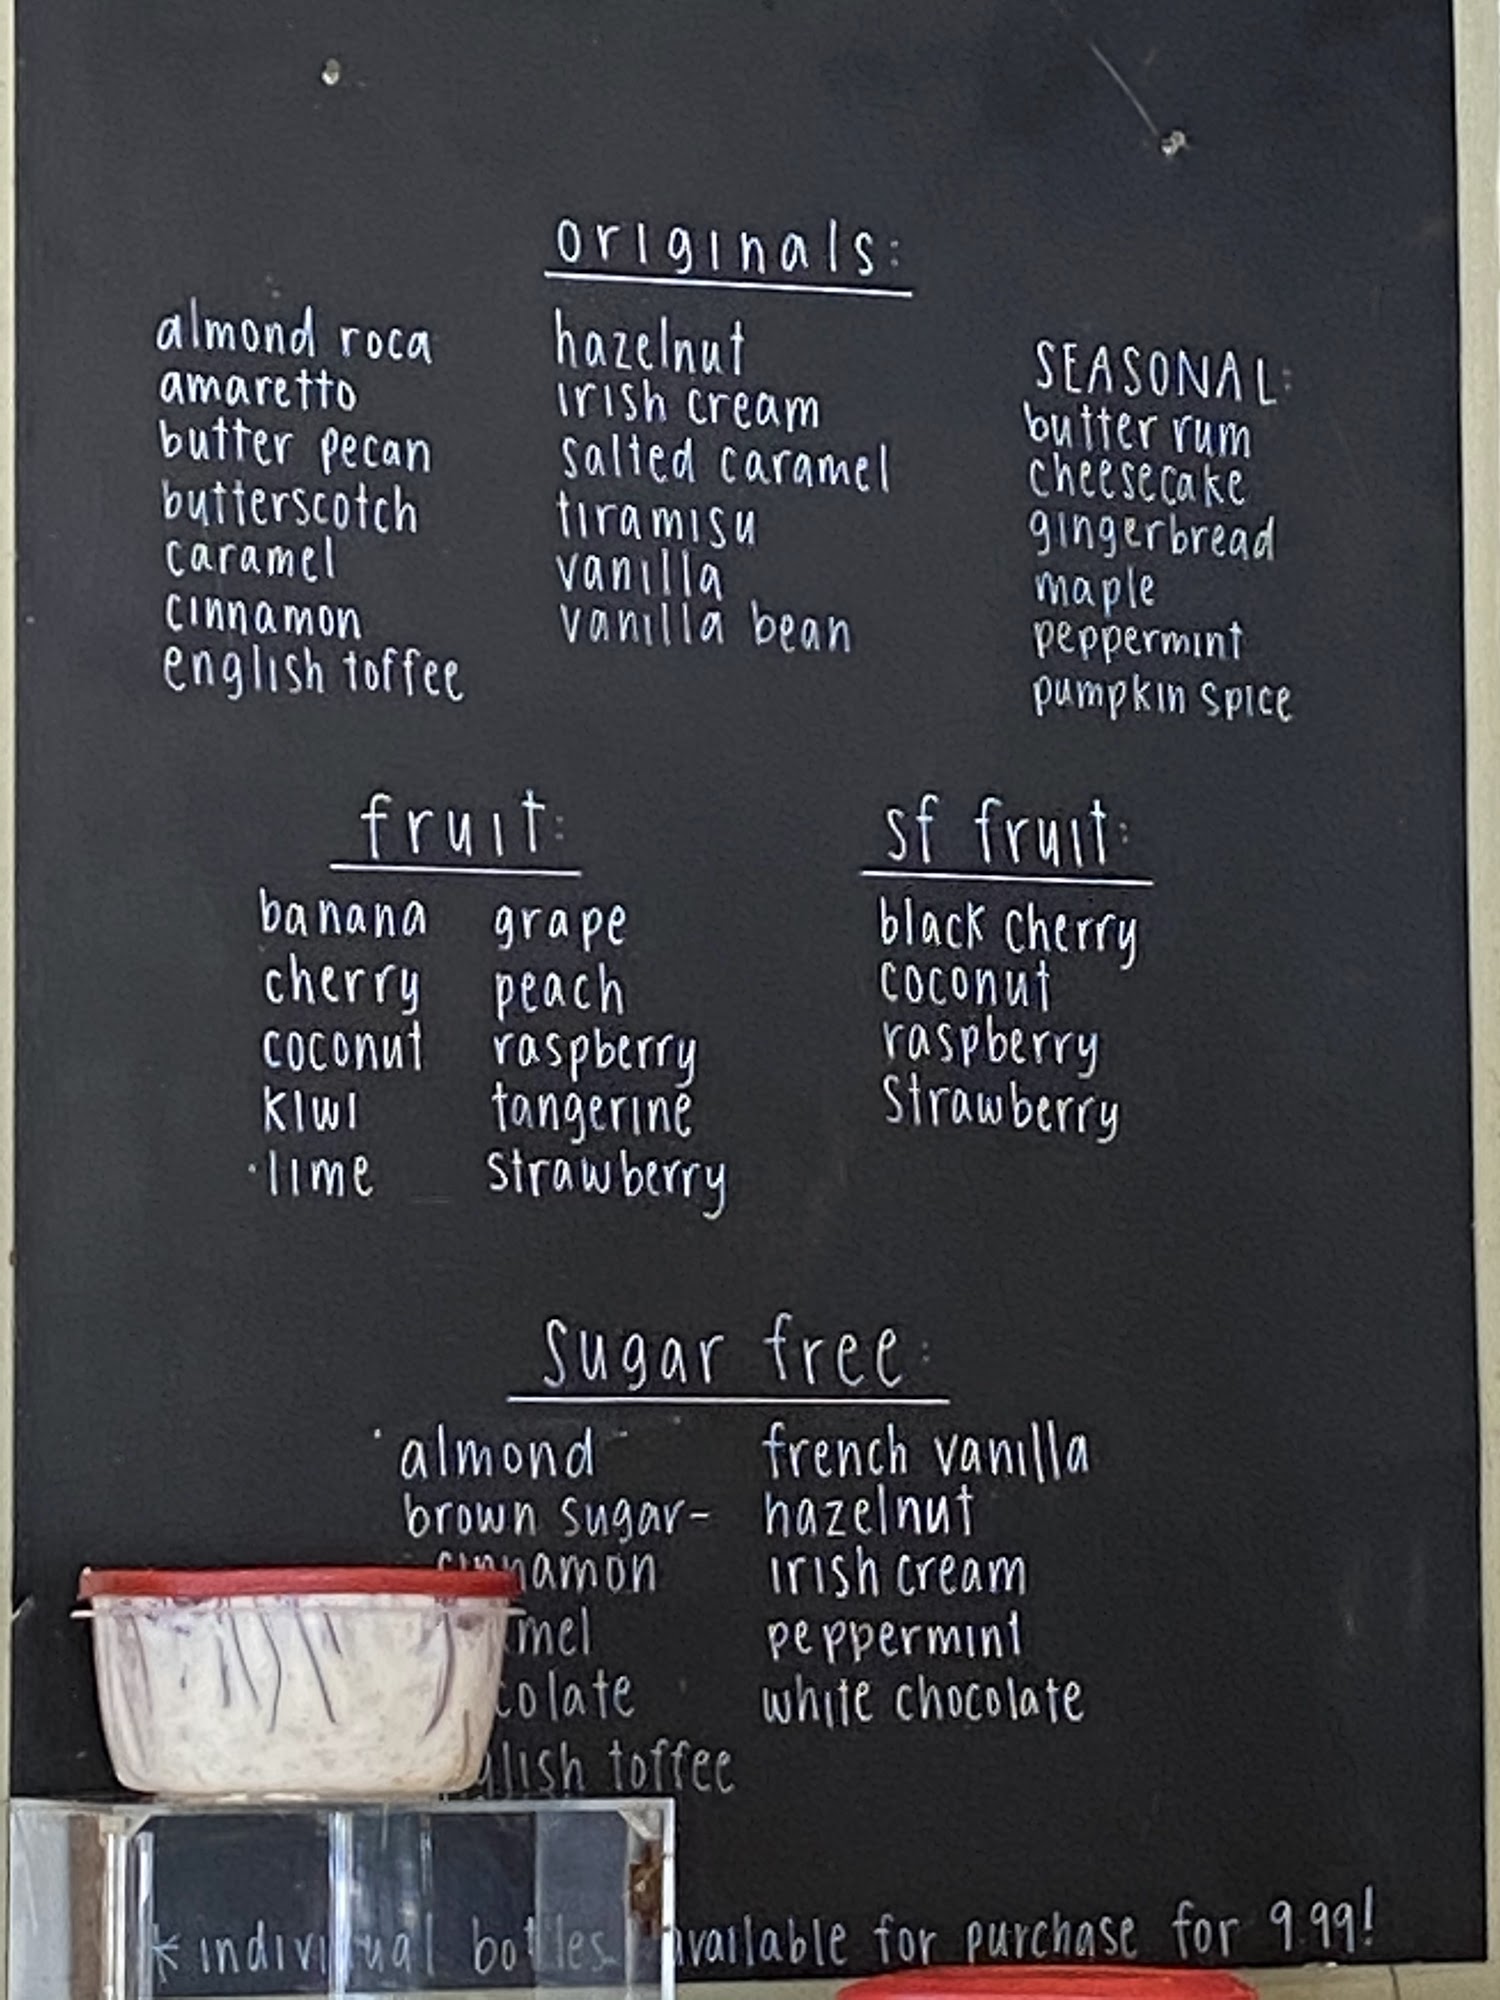 originals:
almond roca
amaretto
butter pecan
butterscotch
caramel
cinnamon
english toffee
hazelnut
irish cream
salted caramel
tiramisu
vanilla
vanilla bean
SEASONAL:
butter rum
cheesecake
gingerbread
maple
peppermint
pumpkin spice
fruit:
banana
cherry
coconut
kiwi
lime
grape
peach
raspberry
tangerine
strawberry
sf fruit:
black cherry
coconut
raspberry
strawberry
sugar free:
almond
brown sugar-
cinnamon
toffee
french vanilla
hazelnut
irish cream
peppermint
white chocolate
* individual bottles available for purchase for 9.99!